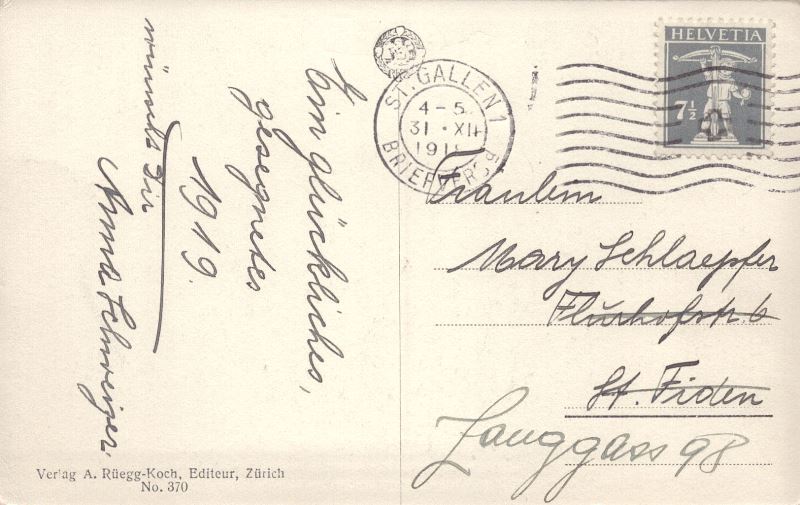 Ein glückliches,
gesegnetes
1919.
wünscht Dir
Anna Schweizer.
Verlag A. Rüegg-Koch, Editeur, Zürich
No. 370
ST. GALLEN 1
4-5
31·XII
BRIEFVERS
HELVETIA
7½
Fräulein
Mary Schlaepfer
Flurhofstr. 6
St. Fiden
Langgass 98